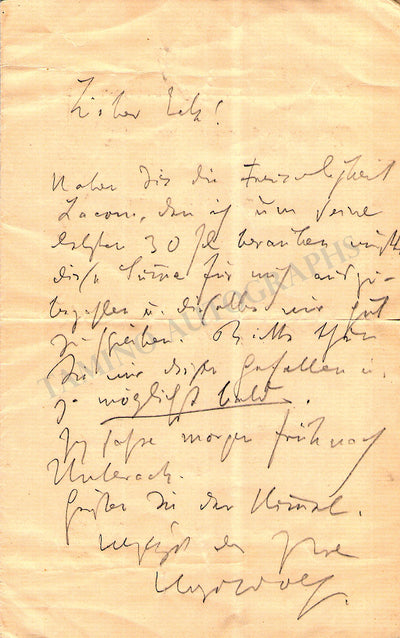 Lieber Eck!
Haben Sie die Freundlichkeit
den ich um seine
letzten 30 fl berauben mußte
diese Summe für mich auszu-
bezahlen u. dieselbe mir gut
zu schreiben. Bitte thun
Sie mir diesen Gefallen u.
möglichst bald.
Ich fahre morgen früh nach
Unterach.
Grüßen Sie
der Ihre
Hugo Wolf
TAMINO AUTOGRAPHS